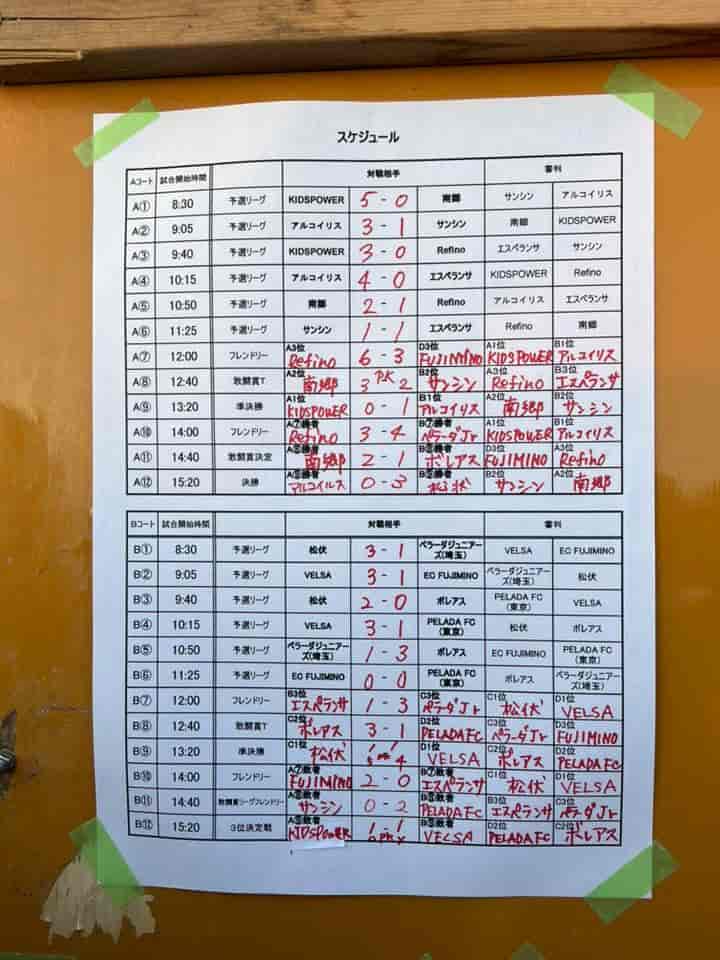 スケジュール
Aコート 試合開始時間 対戦相手 審判
A① 8:30 予選リーグ KIDSPOWER 5 - 0 南郷 サンシン アルコイリス
A② 9:05 予選リーグ アルコイリス 3 - 1 サンシン 南郷 KIDSPOWER
A③ 9:40 予選リーグ KIDSPOWER 3 - 0 Refino エスペランサ サンシン
A④ 10:15 予選リーグ アルコイリス 4 - 0 エスペランサ KIDSPOWER Refino
A⑤ 10:50 予選リーグ 南郷 2 - 1 Refino アルコイリス エスペランサ
A⑥ 11:25 予選リーグ サンシン 1 - 1 エスペランサ Refino 南郷
A⑦ 12:00 フレンドリー A3位 Refino 6 - 3 D3位 FUJIMINO A1位 KIDSPOWER B1位 アルコイリス
A⑧ 12:40 敢闘賞T A2位 南郷 3 PK 2 B2位 サンシン A3位 Refino B3位 エスペランサ
A⑨ 13:20 準決勝 A1位 KIDSPOWER 0 - 1 B1位 アルコイリス A2位 南郷 B2位 サンシン
A⑩ 14:00 フレンドリー A⑦勝者 Refino 3 - 4 B⑦勝者 ペラーダJr A1位 KIDSPOWER B1位 アルコイリス
A⑪ 14:40 敢闘賞決定 A⑧勝者 南郷 2 - 1 B⑧勝者 ボレアス D3位 FUJIMINO A3位 Refino
A⑫ 15:20 決勝 A⑨勝者 アルコイルス 0 - 3 B⑨勝者 松伏 B2位 サンシン A2位 南郷
Bコート 試合開始時間 対戦相手 審判
B① 8:30 予選リーグ 松伏 3 - 1 ペラーダジュニアーズ(埼玉) VELSA EC FUJIMINO
B② 9:05 予選リーグ VELSA 3 - 1 EC FUJIMINO ペラーダジュニアーズ(埼玉) 松伏
B③ 9:40 予選リーグ 松伏 2 - 0 ボレアス PELADA FC (東京) VELSA
B④ 10:15 予選リーグ VELSA 3 - 1 PELADA FC (東京) 松伏 ボレアス
B⑤ 10:50 予選リーグ ペラーダジュニアーズ(埼玉) 1 - 3 ボレアス EC FUJIMINO PELADA FC (東京)
B⑥ 11:25 予選リーグ EC FUJIMINO 0 - 0 PELADA FC (東京) ボレアス ペラーダジュニアーズ(埼玉)
B⑦ 12:00 フレンドリー B3位 エスペランサ 1 - 3 C3位 ペラーダJr C1位 松伏 D1位 VELSA
B⑧ 12:40 敢闘賞T C2位 ボレアス 3 - 1 D2位 PELADAFC C3位 ペラーダJr D3位 FUJIMINO
B⑨ 13:20 準決勝 C1位 松伏 D1位 VELSA C2位 ボレアス D2位 PELADAFC
B⑩ 14:00 フレンドリー A⑦敗者 FUJIMINO 2 - 0 B⑦敗者 エスペランサ C1位 松伏 D1位 VELSA
B⑪ 14:40 敢闘賞リーグフレンドリー A⑧敗者 サンシン 0 - 2 B⑧敗者 PELADAFC B3位 エスペランサ C3位 ペラーダJr
B⑫ 15:20 3位決定戦 A⑨敗者 KIDSPOWER B⑨敗者 VELSA D2位 PELADAFC C2位 ボレアス